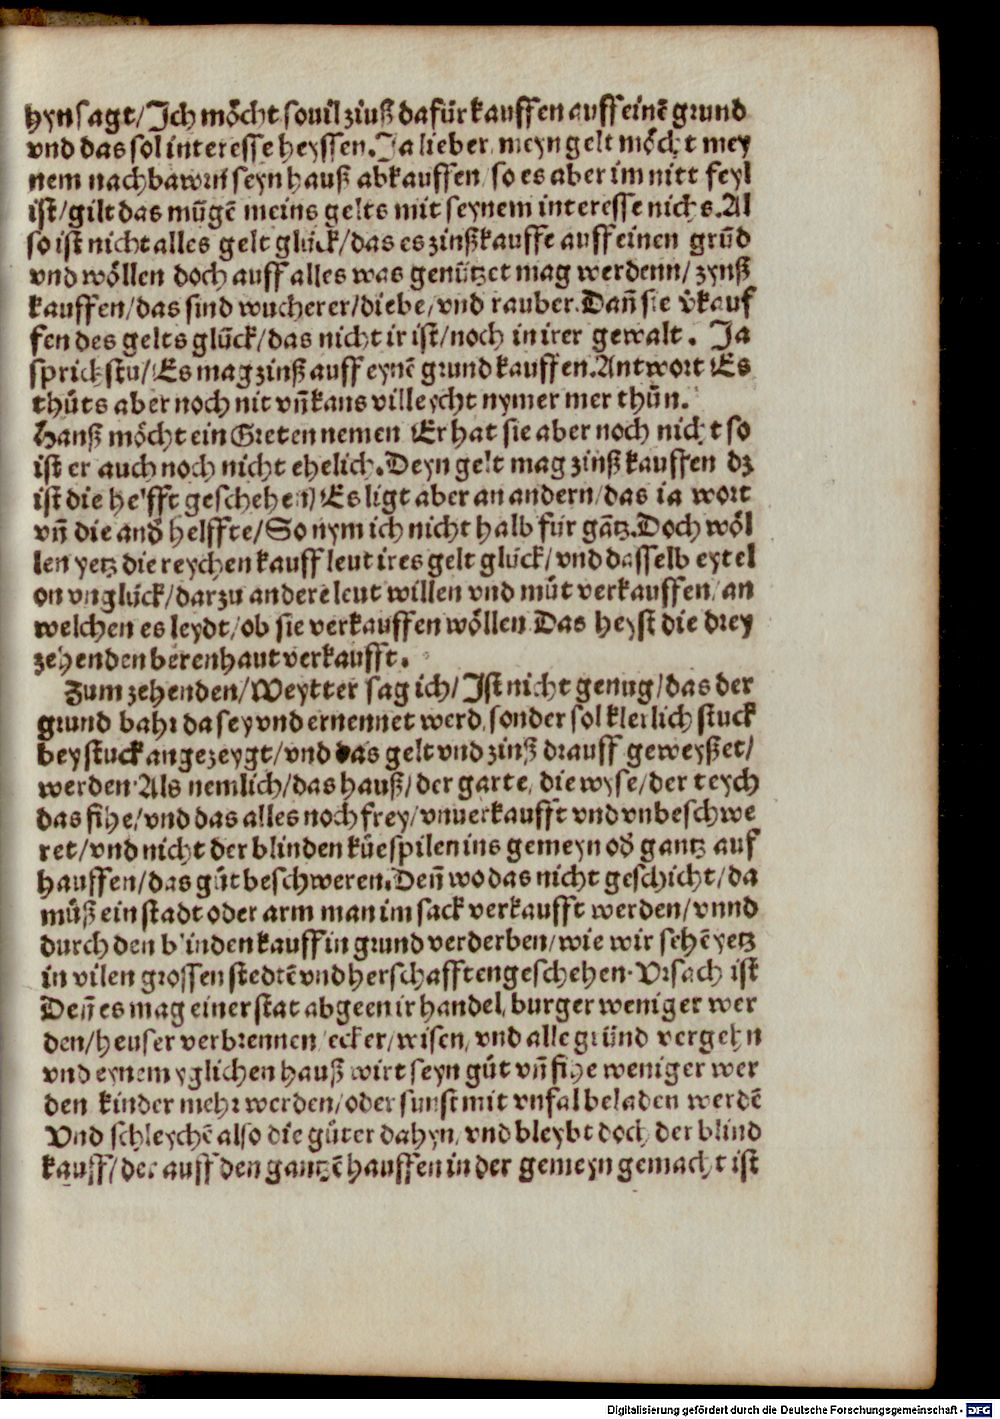 hyn sagt/ Ich möcht souil zinß dafür kauffen auff einē grund
vnd das sol interesse heyssen. Ja lieber, meyn gelt möcht mey
nem nachbawrn seyn hauß abkauffen/ so es aber im nitt feyl
ist/ gilt das mügē meins gelts mit seynem interesse nichs. Al
so ist nicht alles gelt glück/ das es zinß kauffe auff einen grūd
vnd wöllen doch auff alles was genützet mag werdenn/ zynß
kauffen/ das sind wucherer/ diebe/ vnd rauber. Dañ sie v̈kauf
fen des gelts glück/ das nicht ir ist/ noch in irer gewalt. Ja
sprichstu/ Es mag zinß auff eynē grund kauffen. Antwort Es
thůts aber noch nit vñ kans villeycht nymer mer thůn.
Hanß möcht ein Greten nemen Er hat sie aber noch nicht so
ist er auch noch nicht ehelich. Deyn gelt mag zinß kauffen dz
ist die helfft geschehen/ Es ligt aber an andern/ das ia wort
vñ die and̈ helffte/ So nym ich nicht halb für gātz. Doch wöl
len yetz die reychen kauffleut ires gelt glück/ vnd dasselb eytel
on vnglück/ darzu andere leut willen vnd můt verkauffen/ an
welchen es leydt/ ob sie verkauffen wöllen Das heyst die drey
zehenden berenhaut verkaufft.
Zum zehenden/ Weytter sag ich/ Ist nicht genug/ das der
grund bahr da sey vnd ernennet werd, sonder sol klerlich stuck
bey stuck angezeygt/ vnd das gelt vnd zinß drauff geweyßet/
werden. Als nemlich/ das hauß/ der garte, die wyse/ der teych
das fihe/ vnd das alles noch frey/ vnuerkaufft vnd vnbeschwe
ret/ vnd nicht der blinden küe spilen ins gemeyn od̈ gantz auf
hauffen/ das gůt beschweren. Deñ wo das nicht geschicht/ da
můß ein stadt oder arm man im sack verkaufft werden/ vnnd
durch den blinden kauff in grund verderben/ wie wir sehē yetz
in vilen grossen stedtē vnd herschafften geschehen. Vrsach ist
Deñ es mag einer stat abgeen ir handel, burger weniger wer
den/ heuser verbrennen/ ecker/ wisen, vnd alle gründ vergehn
vnd eynem yglichen hauß wirt seyn gůt vñ fihe weniger wer
den kinder mehr werden/ oder sunst mit vnfal beladen werdē
Vnd schleychē also die güter dahyn, vnd bleybt doch der blind
kauff/ der auff den gantzē hauffen in der gemeyn gemacht ist
Digitalisierung gefördert durch die Deutsche Forschungsgemeinschaft - DFG